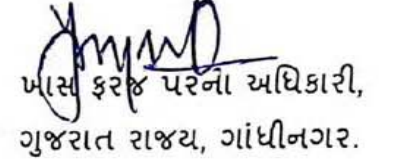 ખાસ ફરજ પરના અધિકારી,
ગુજરાત રાજય, ગાંધીનગર.